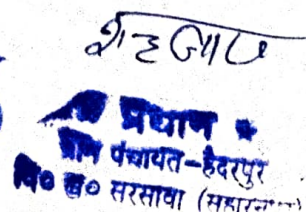 शहजाद
प्रधान
ग्राम पंचायत-हैदरपुर
वि० ख० सरसावा (सहारनपुर)